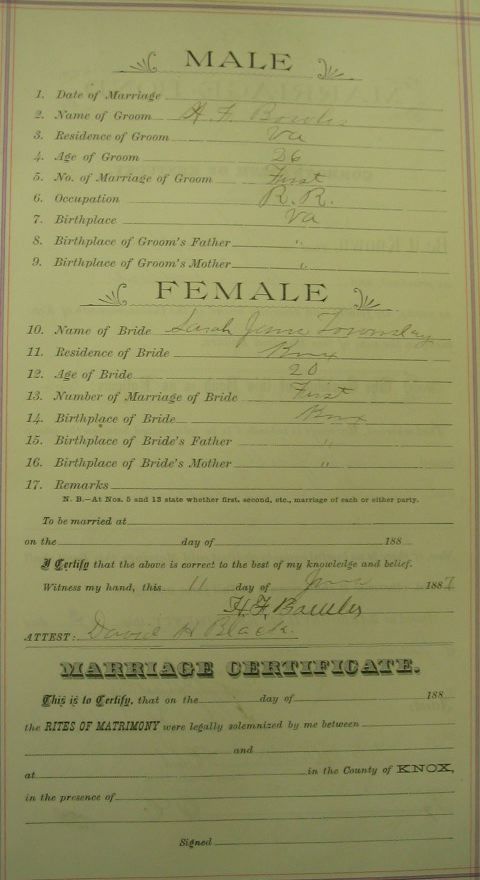 MALE
1. Date of Marriage
2. Name of Groom H. F. Bowles
3. Residence of Groom Va
4. Age of Groom 26
5. No. of Marriage of Groom First
6. Occupation R. R.
7. Birthplace Va
8. Birthplace of Groom's Father "
9. Birthplace of Groom's Mother "
FEMALE
10. Name of Bride Sarah Jane Townsley
11. Residence of Bride Knox
12. Age of Bride 20
13. Number of Marriage of Bride First
14. Birthplace of Bride Knox
15. Birthplace of Bride's Father "
16. Birthplace of Bride's Mother "
17. Remarks
N. B.—At Nos. 5 and 13 state whether first, second, etc., marriage of each or either party.
To be married at
on the day of 188
I Certify that the above is correct to the best of my knowledge and belief.
Witness my hand, this 11 day of 1887
H. F. Bowles
ATTEST: David H Black.
MARRIAGE CERTIFICATE.
This is to Certify, that on the day of 188
the RITES OF MATRIMONY were legally solemnized by me between
and
at in the County of KNOX,
in the presence of
Signed